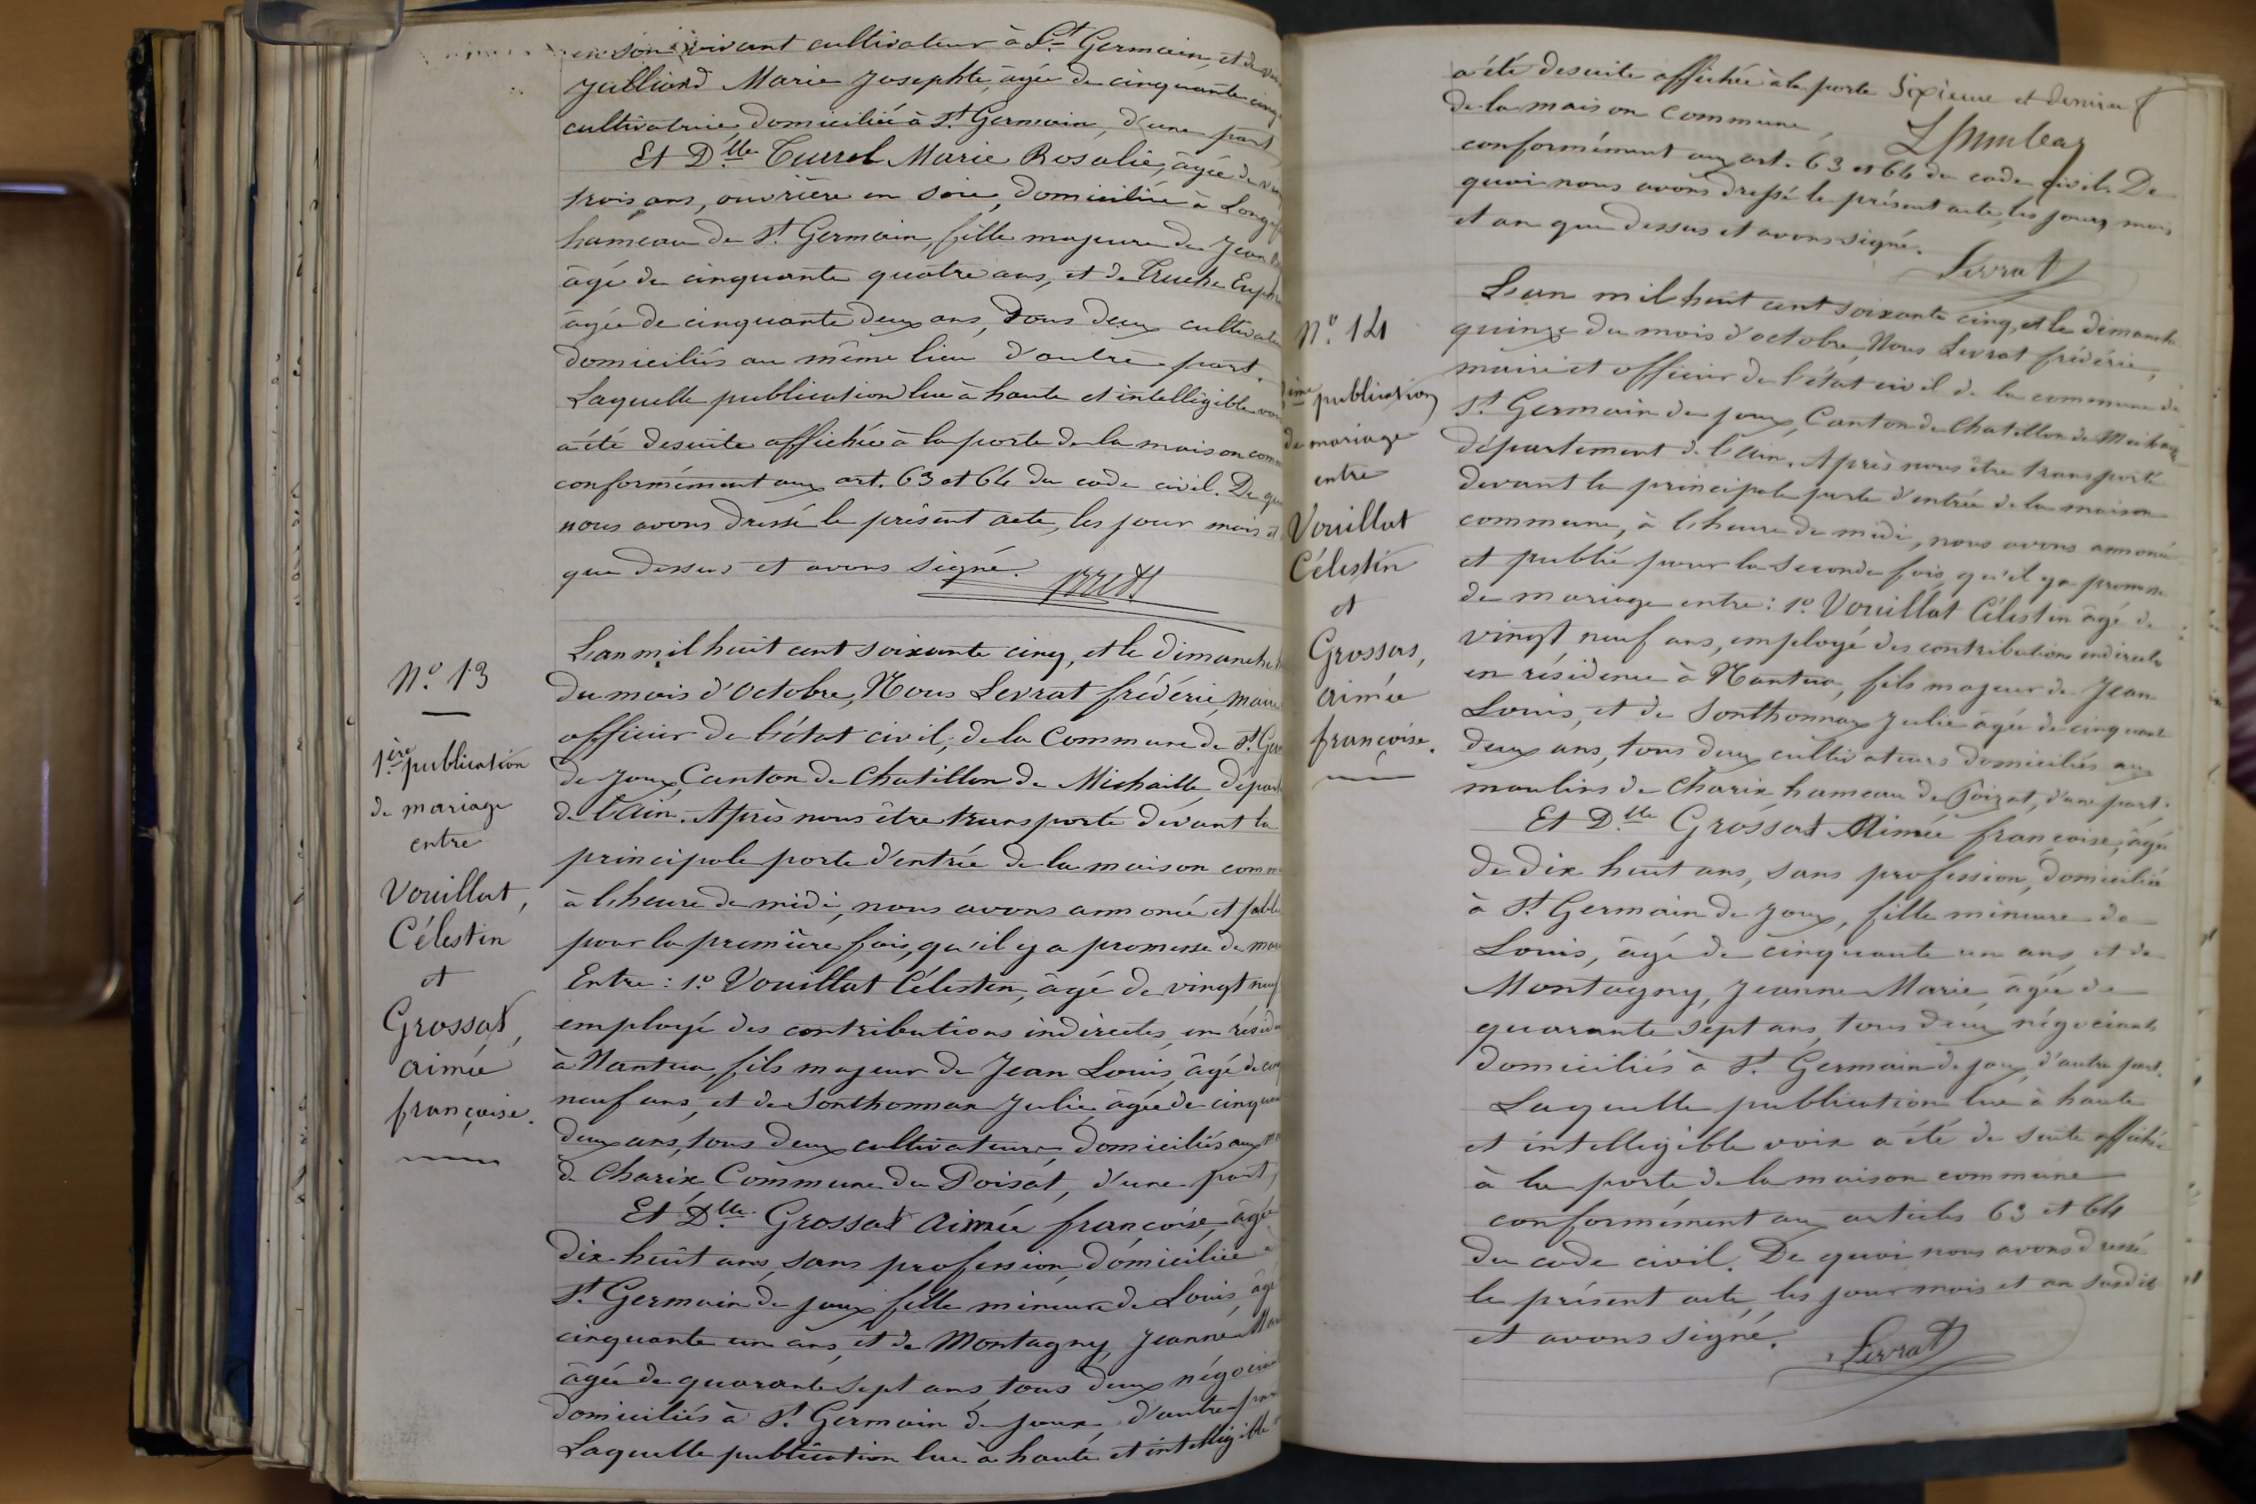 en son vivant cultivateur à St Germain, et de
Julliard Marie Josephte, âgée de cinquante cinq
cultivatrice, domiciliée à St Germain, d'une part
Et Dlle Turrel Marie Rosalie, âgée de
trois ans, ouvrière en soie, domiciliée à
hameau de St Germain, fille majeure de Jean
âgé de cinquante quatre ans, et de Truche
âgée de cinquante deux ans, tous deux
domiciliés au même lieu d'autre part.
Laquelle publication lue à haute et intelligible voix
a été desuite affichée à la porte de la maison
conformément aux art. 63 et 64 du code civil. De
nous avons dressé le présent acte, les jour mois et
que dessus et avons signé.
N° 13
1ère publication
de mariage
entre
Vouillat,
Célestin
et
Grossat,
aimée
françoise.
L'an mil huit cent soixante cinq, et le dimanche
du mois d'octobre, Nous Levrat frédéric, maire
officier de l'état civil, de la Commune de St
de Joux, Canton de Chatillon de Michaille,
de l'Ain. Après nous être transporté devant la
principale porte d'entrée de la maison
à l'heure de midi, nous avons annoncé et
pour la première fois, qu'il y a promesse de
Entre : 1° Vouillat Célestin, âgé de vingt neuf
employé des contributions indirectes, en
à Nantua, fils majeur de Jean Louis, âgé de
neuf ans, et de Sonthonnax Julie âgée de
deux ans, tous deux cultivateurs, domiciliés aux
de Charix Commune du Poisat, d'une part,
Et Dlle Grossat Aimée françoise, âgée
dix-huit ans, sans profession, domiciliée
St Germain de joux fille mineure de Louis, âgé
cinquante un ans, et de Montagny, Jeanne
âgée de quarante sept ans, tous deux
domiciliés à St Germain de joux, d'autre
Laquelle publication lue à haute et intelligible
a été desuite affichée à la porte Sixième et dernier
de la maison commune,
conformément aux art. 63 et 64 du code civil. De
quoi nous avons dressé le présent acte, les jour, mois
et an que dessus et avons signé.
Levrat
N° 14
publication
de mariage
entre
Vouillat
Célestin
et
Grossat,
aimée
françoise.
L'an mil huit cent soixante cinq, et le dimanche
quinze du mois d'octobre, Nous Levrat frédéric,
maire et officier de l'état civil de la commune de
St Germain de joux, Canton de Chatillon de Michaille
département de l'Ain. Après nous être transporté
devant la principale porte d'entrée de la maison
commune, à l'heure de midi, nous avons annoncé
et publié pour la seconde fois, qu'il y a promesse
de mariage entre : 1° Vouillat Célestin âgé de
vingt neuf ans, employé des contributions indirectes
en résidence à Nantua, fils majeur de Jean
Louis, et de Sonthonnax Julie âgée de cinquante
deux ans, tous deux cultivateurs domiciliés aux
moulins de Charix hameau de Poizat, d'une part.
Et Dlle Grossat Aimée françoise, âgée
de dix huit ans, sans profession, domiciliée
à St Germain de joux, fille mineure de
Louis, âgé de cinquante un ans, et de
Montagny, Jeanne Marie, âgée de
quarante sept ans, tous deux négociants
domiciliés à St Germain de joux, d'autre part.
Laquelle publication lue à haute
et intelligible voix a été de suite affichée
à la porte de la maison commune
conformément aux articles 63 et 64
du code civil. De quoi nous avons dressé
le présent acte, les jour mois et an susdits
et avons signé.
Levrat